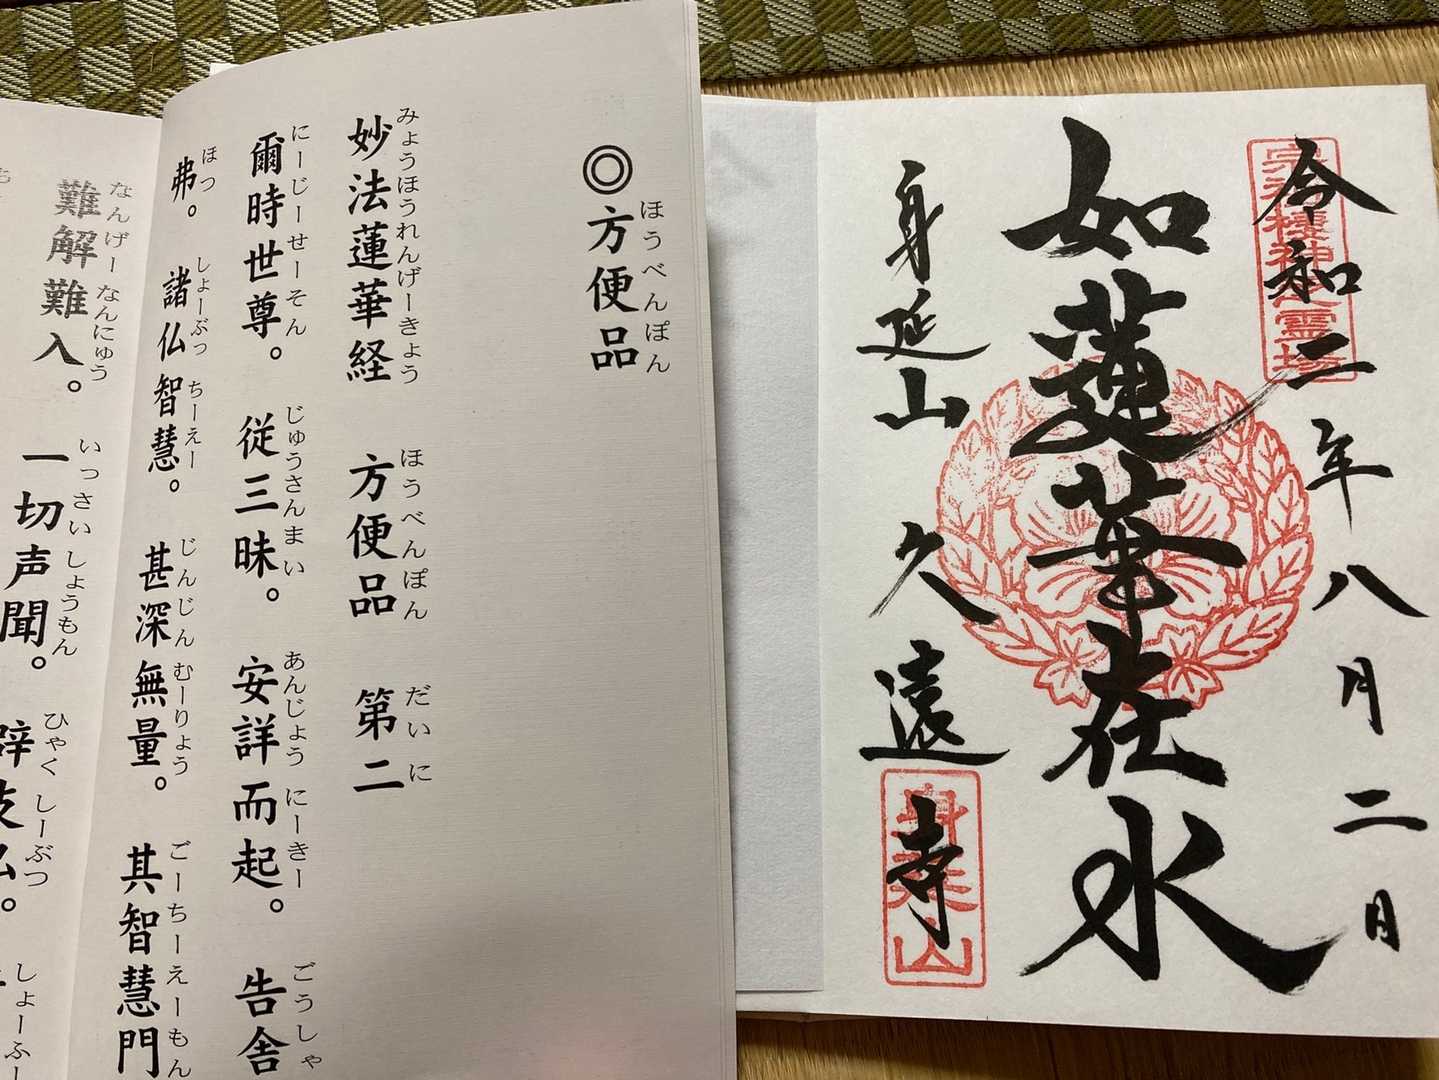 令和二年八月二日
如蓮華在水
身延山
久遠寺
身延山
◎方便品
ほうべんぽん
妙法蓮華経 方便品 第二
みょうほうれんげーきょう ほうべんぽん だいに
爾時世尊。 従三昧。 安詳而起。 告舎
にーじーせーそん じゅうさんまい あんじょうにーきー ごうしゃ
弗。 諸仏智慧。 甚深無量。 其智慧門
ほつ しょーぶつちーえー じんじんむーりょう ごーちーえーもん
難解難入。 一切声聞。
なんげーなんにゅう いっさいしょうもん ひゃくしーぶつ しょーふー